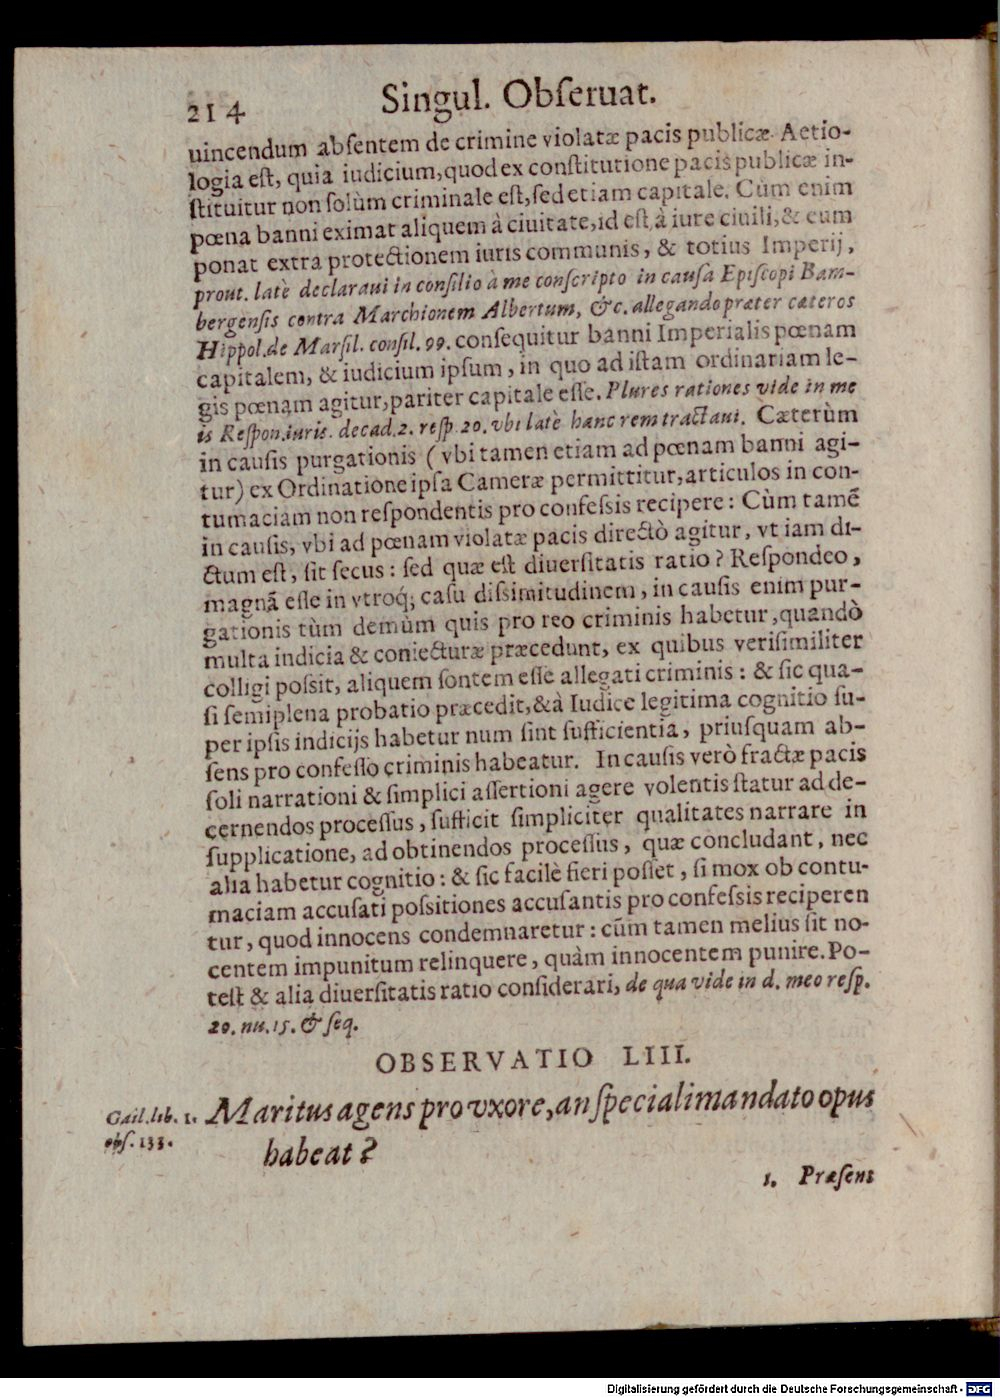 214 Singul. Obſeruat.
uincendum abſentem de crimine violatæ pacis publicæ. Aetio-
logia eſt, quia iudicium, quod ex conſtitutione pacis publicæ in-
ſtituitur non ſolùm criminale eſt, ſed etiam capitale. Cùm enim
pœna banni eximat aliquem à ciuitate, id eſt, à iure ciuili, & eum
ponat extra protectionem iuris communis, & totius Imperij,
prout. latè declaraui in conſilio à me conſcripto in cauſa Epiſcopi Bam-
bergenſis contra Marchionem Albertum, &c. allegando præter cæteros
Hippol. de Marſil. conſil. 99. conſequitur banni Imperialis pœnam
capitalem, & iudicium ipſum, in quo ad iſtam ordinariam le-
gis pœnam agitur, pariter capitale eſſe. Plures rationes vide in me
is Reſpon. iuris. decad. 2. reſp. 20. vbi latè hanc rem tractaui. Cæterùm
in cauſis purgationis (vbi tamen etiam ad pœnam banni agi-
tur) ex Ordinatione ipſa Cameræ permittitur, articulos in con-
tumaciam non reſpondentis pro confeſsis recipere: Cùm tamẽ
in cauſis, vbi ad pœnam violatæ pacis directò agitur, vt iam di-
ctum eſt, ſit ſecus: ſed quæ eſt diuerſitatis ratio? Reſpondeo,
magnã eſſe in vtroq́; caſu diſsimitudinem, in cauſis enim pur-
gationis tùm demùm quis pro reo criminis habetur, quandò
multa indicia & coniecturæ præcedunt, ex quibus veriſimiliter
colligi poſsit, aliquem ſontem eſſe allegati criminis: & ſic qua-
ſi ſemiplena probatio præcedit, & à Iudice legitima cognitio ſu-
per ipſis indicijs habetur num ſint ſufficientia, priuſquam ab-
ſens pro confeſſo criminis habeatur. In cauſis verò fractæ pacis
ſoli narrationi & ſimplici aſſertioni agere volentis ſtatur ad de-
cernendos proceſſus, ſufficit ſimpliciter qualitates narrare in
ſupplicatione, ad obtinendos proceſſus, quæ concludant, nec
alia habetur cognitio: & ſic facilè fieri poſſet, ſi mox ob contu-
maciam accuſati poſsitiones accuſantis pro confeſsis reciperen
tur, quod innocens condemnaretur: cũm tamen melius ſit no-
centem impunitum relinquere, quàm innocentem punire. Po-
teſt & alia diuerſitatis ratio conſiderari, de qua vide in d. meo reſp.
20. nu. 15. & ſeq.
OBSERVATIO LIII.
Gail. lib. 1.
obſ. 133.
Maritus agens pro vxore, an ſpeciali mandato opus
habeat?
1. Præſens
Digitalisierung gefördert durch die Deutsche Forschungsgemeinschaft - DFG